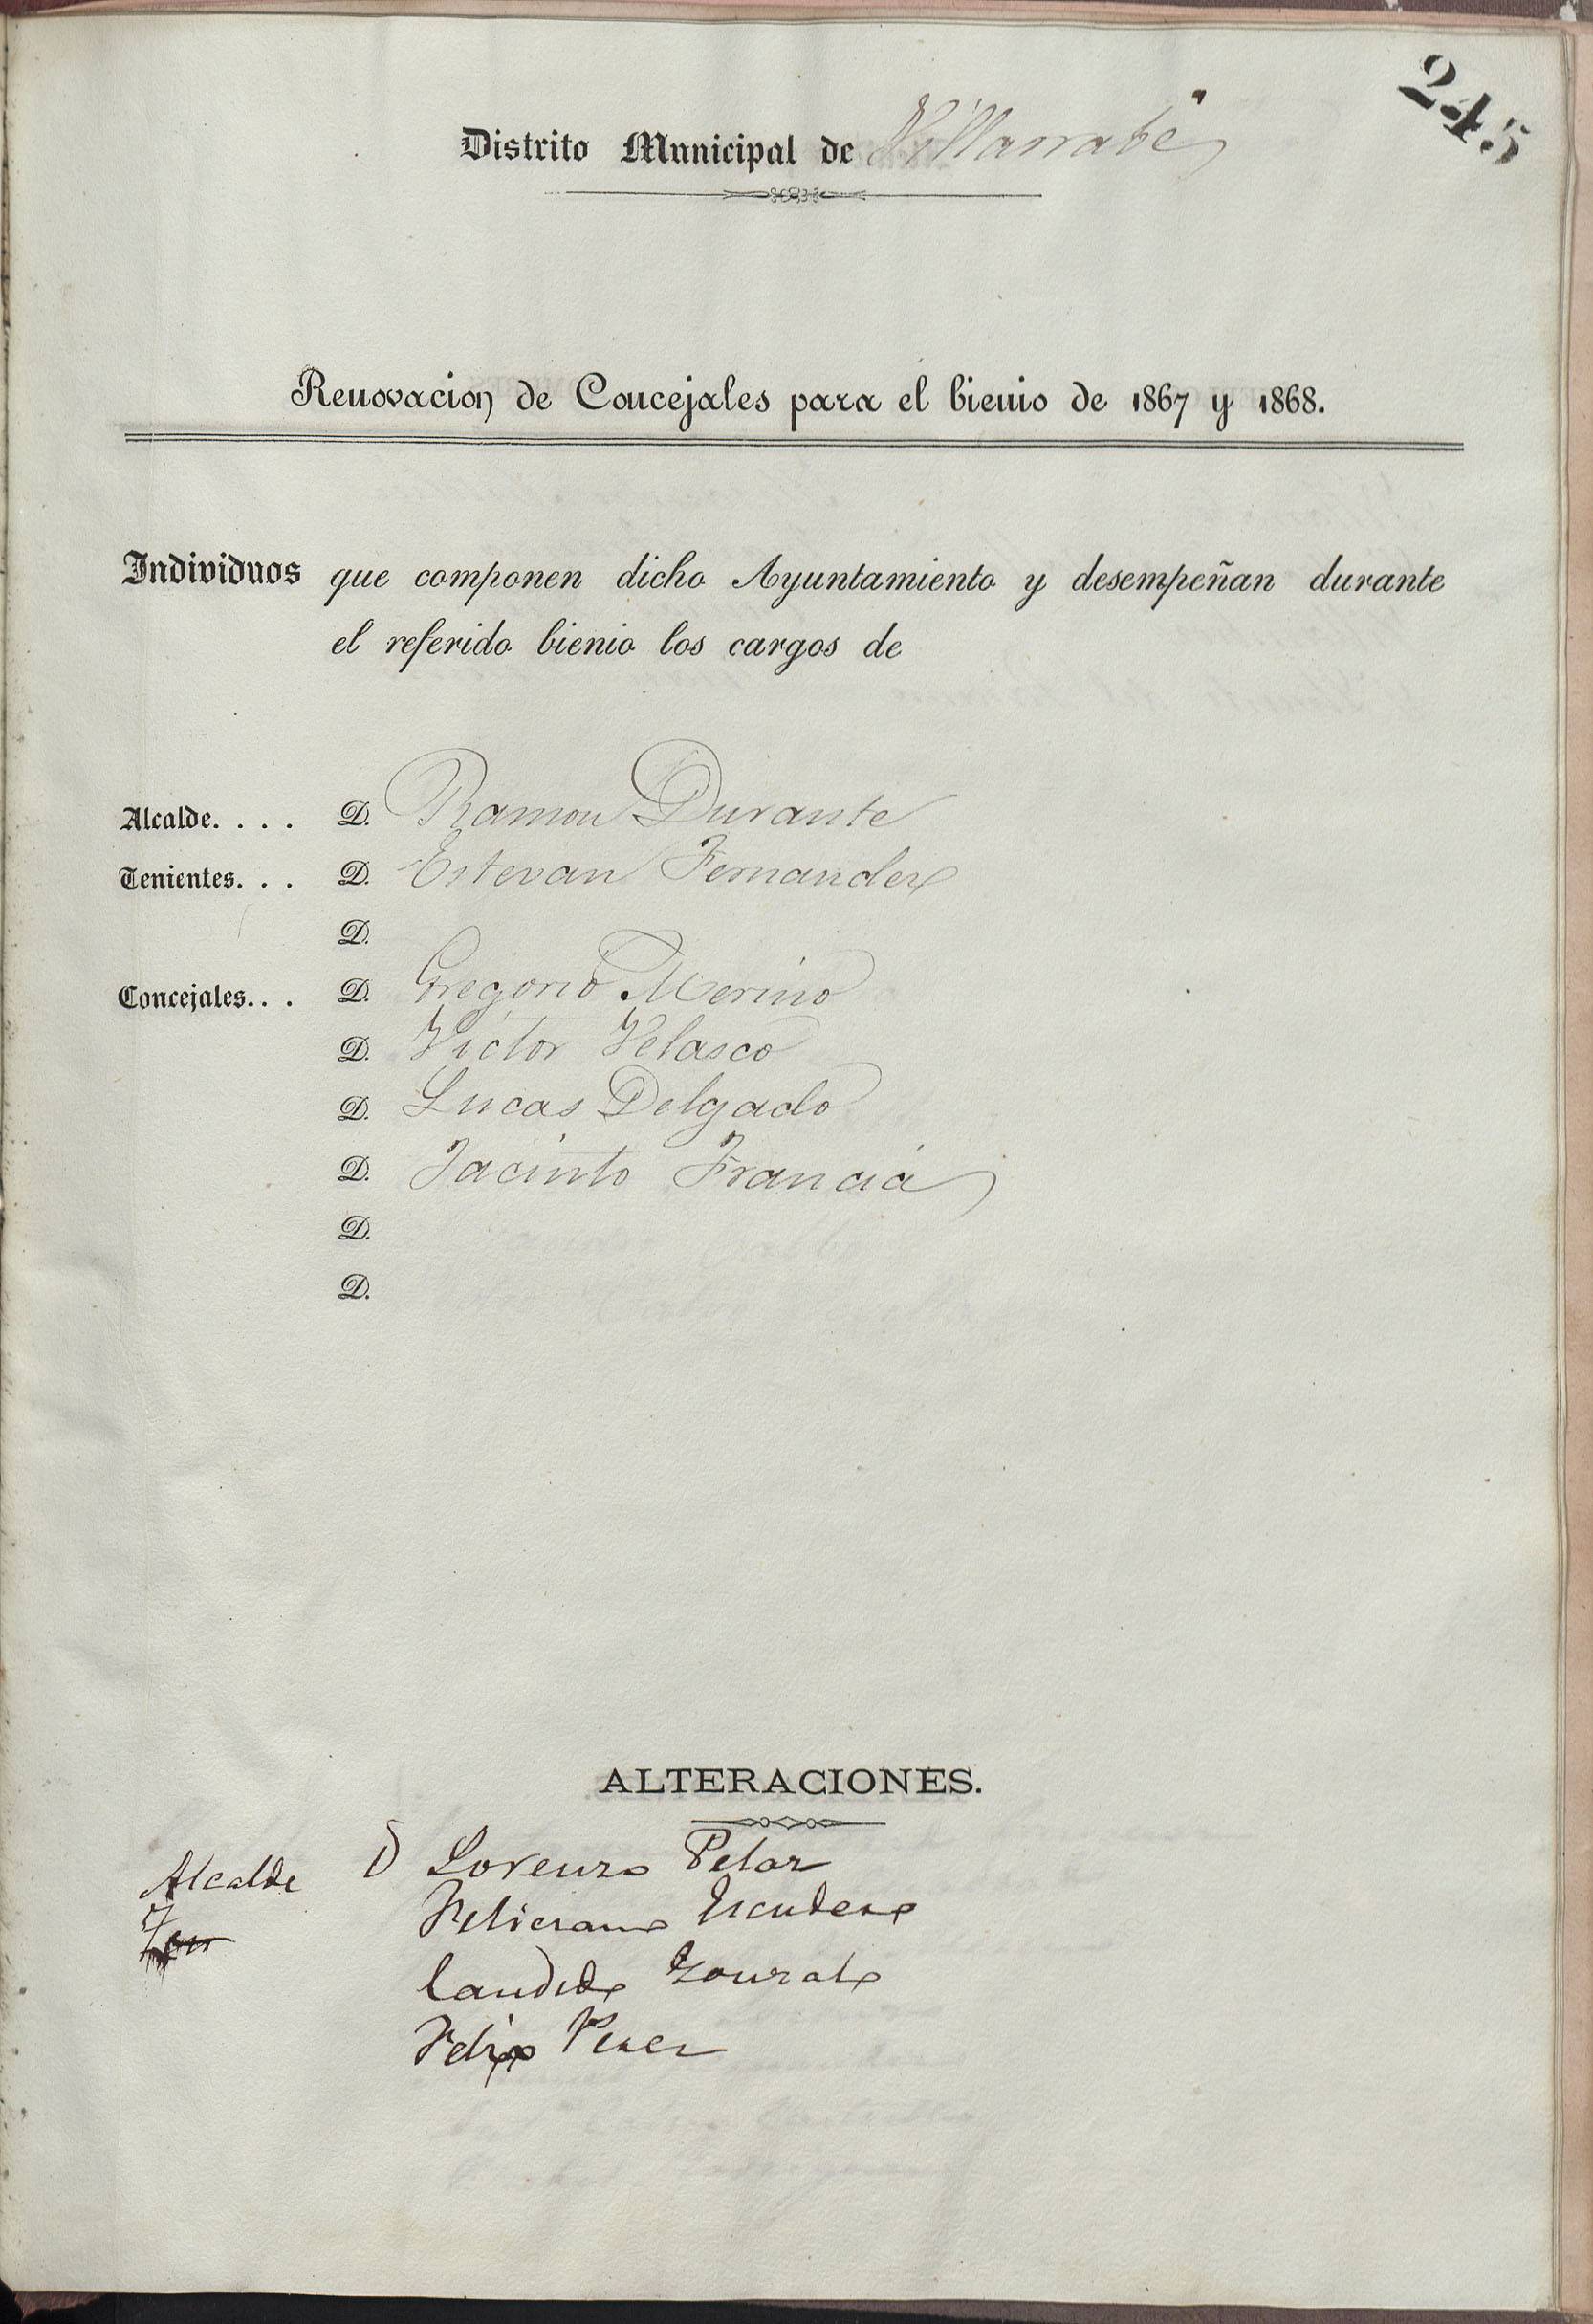 245
Distrito Municipal de Villarrabé
Renovacion de Concejales para el bienio de 1867 y 1868.
Individuos que componen dicho Ayuntamiento y desempeñan durante
el referido bienio los cargos de
Alcalde.... D. Ramon Durante
Tenientes... D. Estevan Fernandez
D.
Concejales... D. Gregorio Merino
D. Victor Velasco
D. Lucas Delgado
D. Jacinto Francia
D.
D.
ALTERACIONES.
Alcalde D Lorenzo Pelaz
Feliciano Escudero
Candido Gonzalo
Felix Perez